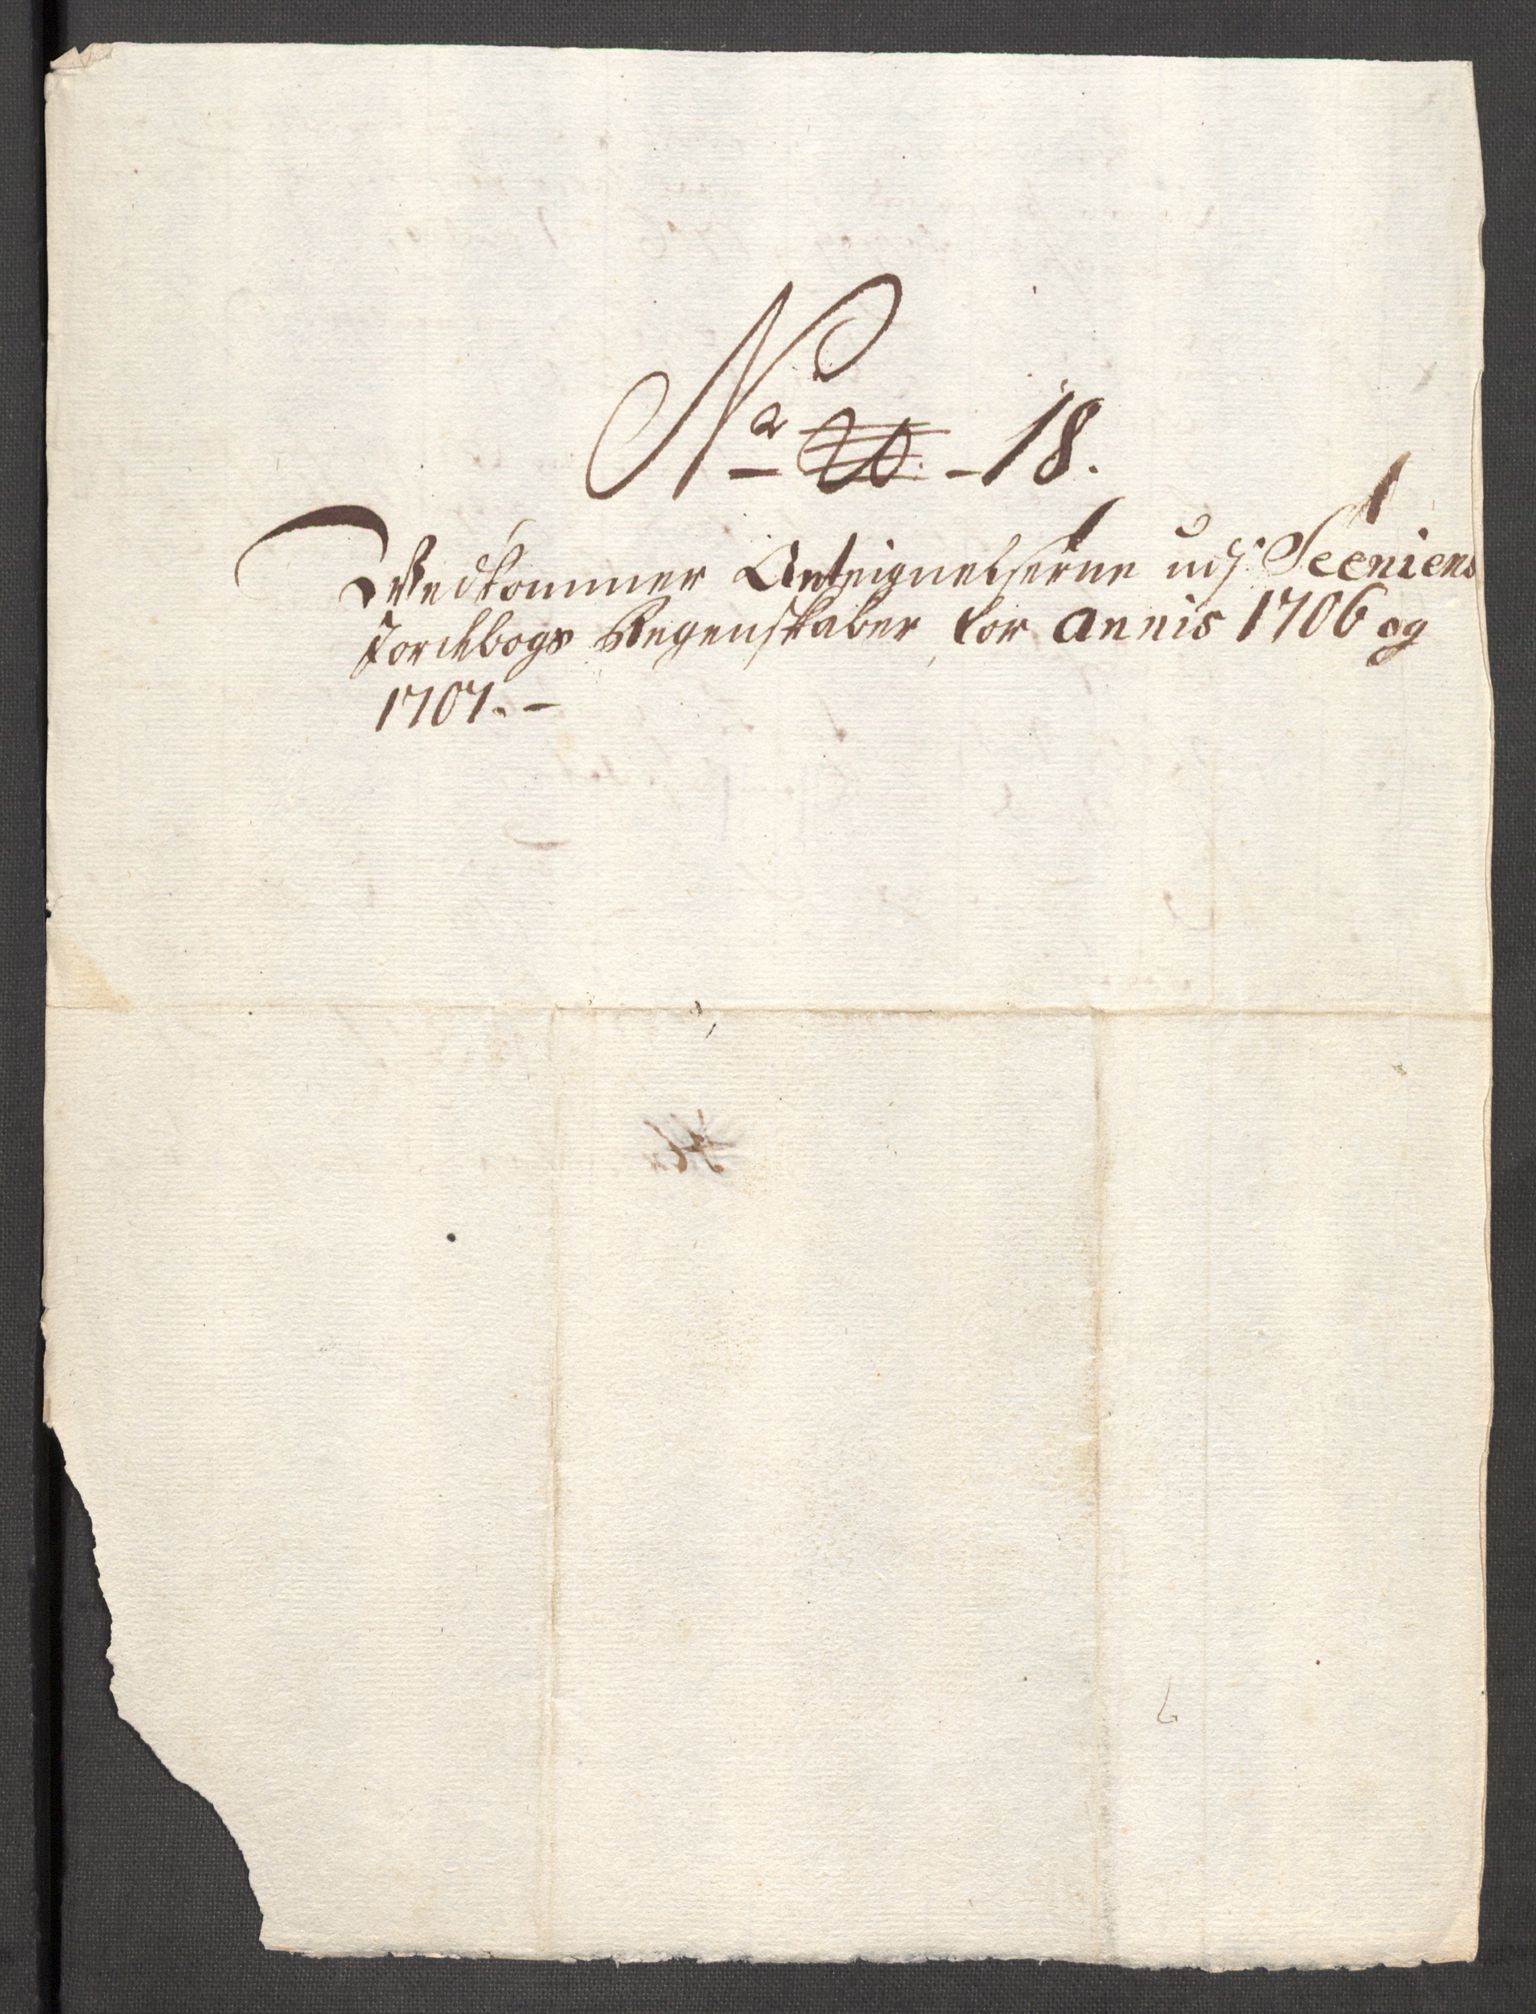 No 20. - 18.
Vedkommer Anteignelserne udj Seeniens
Jordbogs Regenskaber for Annis 1706 og
1707. -